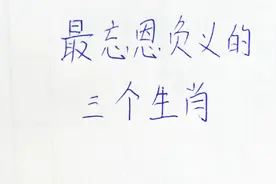 最忘恩负义的
三个生肖